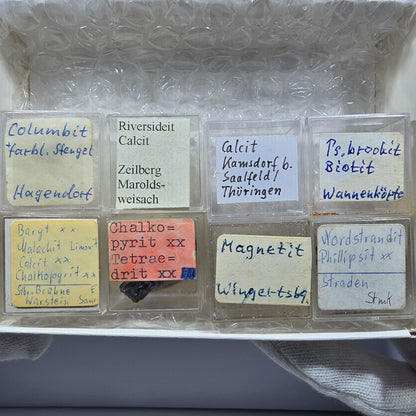 Columbit
farbl. Stengel
Hagendorf
Riversideit
Calcit
Zeilberg
Marolds-
weisach
Calcit
Kamsdorf b.
Saalfeld/
Thüringen
Ps. brookit
Biotit
Wannenköpfe
Baryt xx
Malachit Limonit
Calcit xx
Chalkopyrit xx
Stbr. Brühne
Chalko=
pyrit xx
Tetrae=
drit xx
Magnetit
Wingertsbg.
Nordstrandit
Phillipsit xx
Straden
Stmk